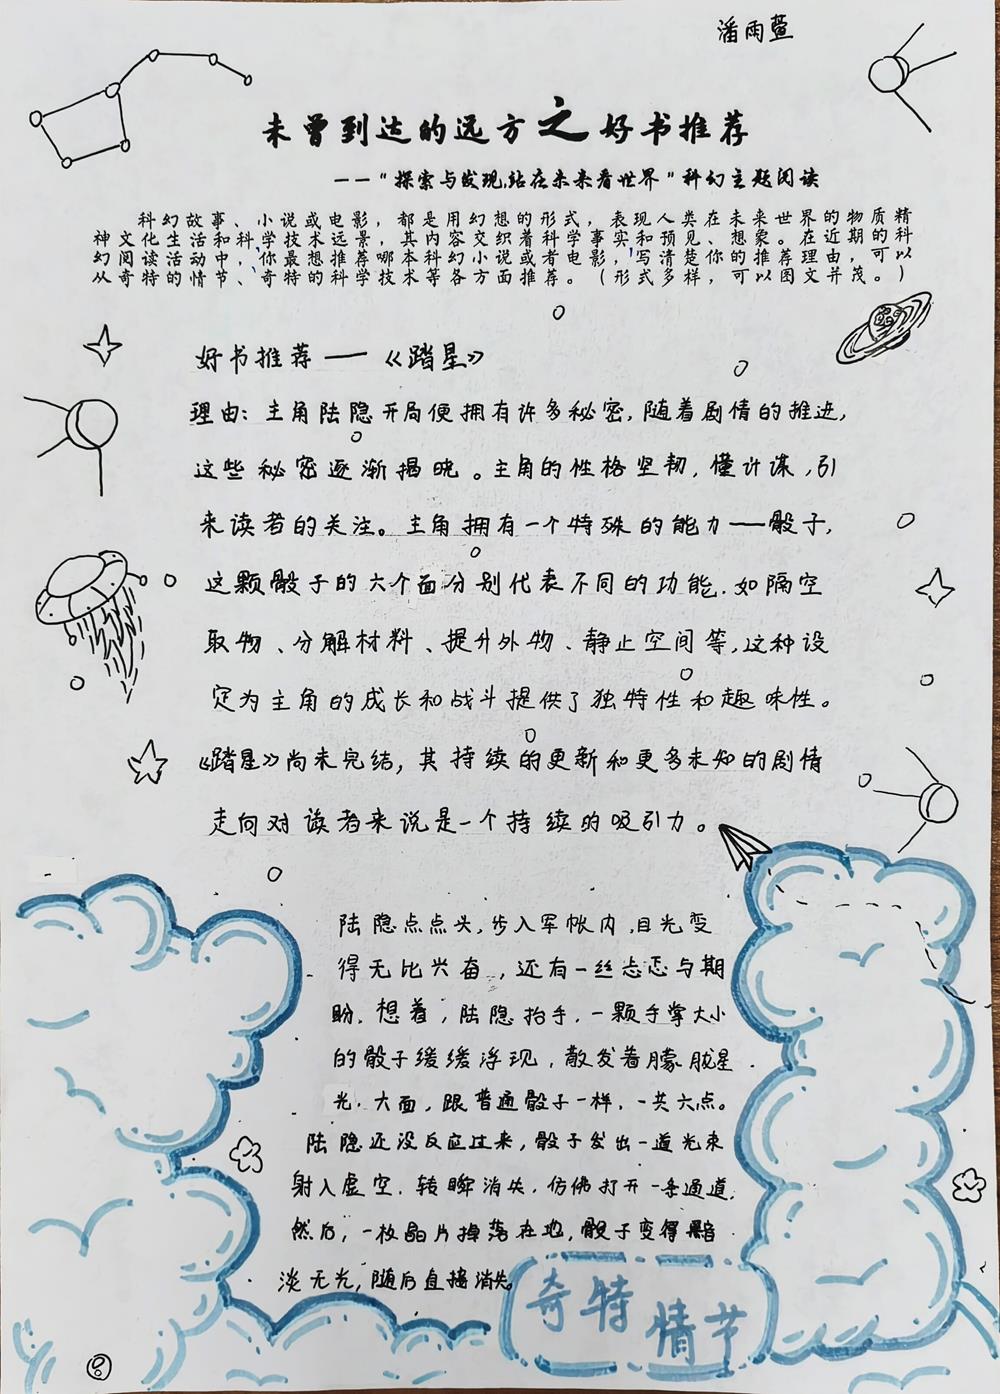 潘雨萱
未曾到达的远方之好书推荐
——“探索与发现,站在未来看世界”科幻主题阅读
科幻故事、小说或电影，都是用幻想的形式，表现人类在未来世界的物质精
神文化生活和科学技术远景，其内容交织着科学事实和预见、想象。在近期的科
幻阅读活动中，你最想推荐哪本科幻小说或者电影，写清楚你的推荐理由，可以
从奇特的情节、奇特的科学技术等各方面推荐。（形式多样，可以图文并茂。）
好书推荐——《踏星》
理由：主角陆隐开局便拥有许多秘密,随着剧情的推进,
这些秘密逐渐揭晓。主角的性格坚韧,懂计谋,引
来读者的关注。主角拥有一个特殊的能力——骰子,
这颗骰子的六个面分别代表不同的功能.如隔空
取物、分解材料、提升外物、静止空间等,这种设
定为主角的成长和战斗提供了独特性和趣味性。
《踏星》尚未完结,其持续的更新和更多未知的剧情
走向对读者来说是一个持续的吸引力。
陆隐点点头,步入军帐内,目光变
得无比兴奋,还有一丝忐忑与期
盼.想着,陆隐抬手,一颗手掌大小
的骰子缓缓浮现,散发着朦胧星
光.六面,跟普通骰子一样,一共六点。
陆隐还没反应过来,骰子发出一道光束
射入虚空.转瞬消失.仿佛打开一条通道.
然后,一枚晶片掉落在地,骰子变得黯
淡无光,随后直接消失。
奇特
情节
8